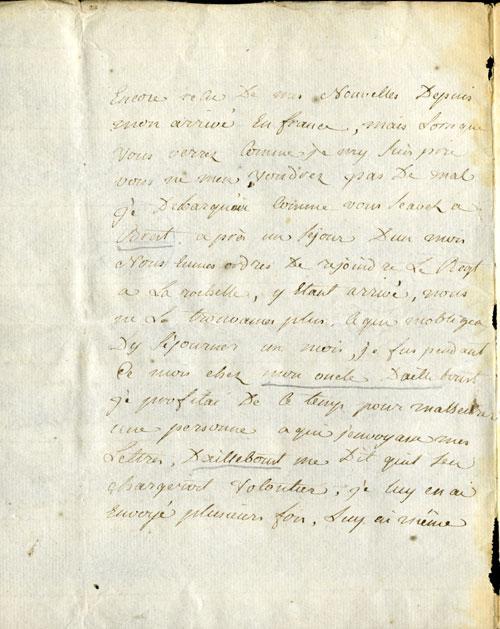 Encore recu De mes Nouvelles Depuis
mon arrivé En france, mais Lorsque
vous verrez Comme je my suis pris
vous ne men voudrez pas De mal
je Debarquai Comme vous scavez a
Brest après un séjour Dun mois
Nous Eumes ordres De rejoindre Le Regt
a La rochelle, y Etant arrivé, nous
ne Le trouvames plus, Ce qui mobligea
Dy séjourner un mois, je fus pendant
Ce mois chez mon oncle Daillebout
je profitai De Ce temps pour
une personne a qui jenvoyam mes
Lettres, Daillebout me Dit quil sen
chargeroit volontier, je luy en ai
Envoyé plusieurs fois, Luy ai même